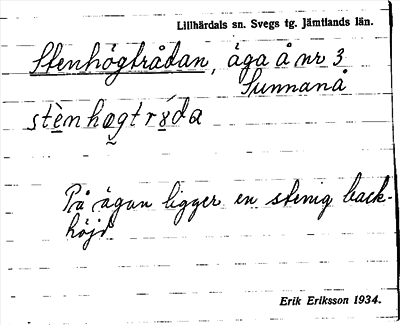 Lillhärdals sn. Svegs tg. Jämtlands län.
Stenhögtrådan, äga å nr 3
Sunnanå
stènhøgtrȣ́da
På ägan ligger en stenig back-
höjd
Erik Eriksson 1934.